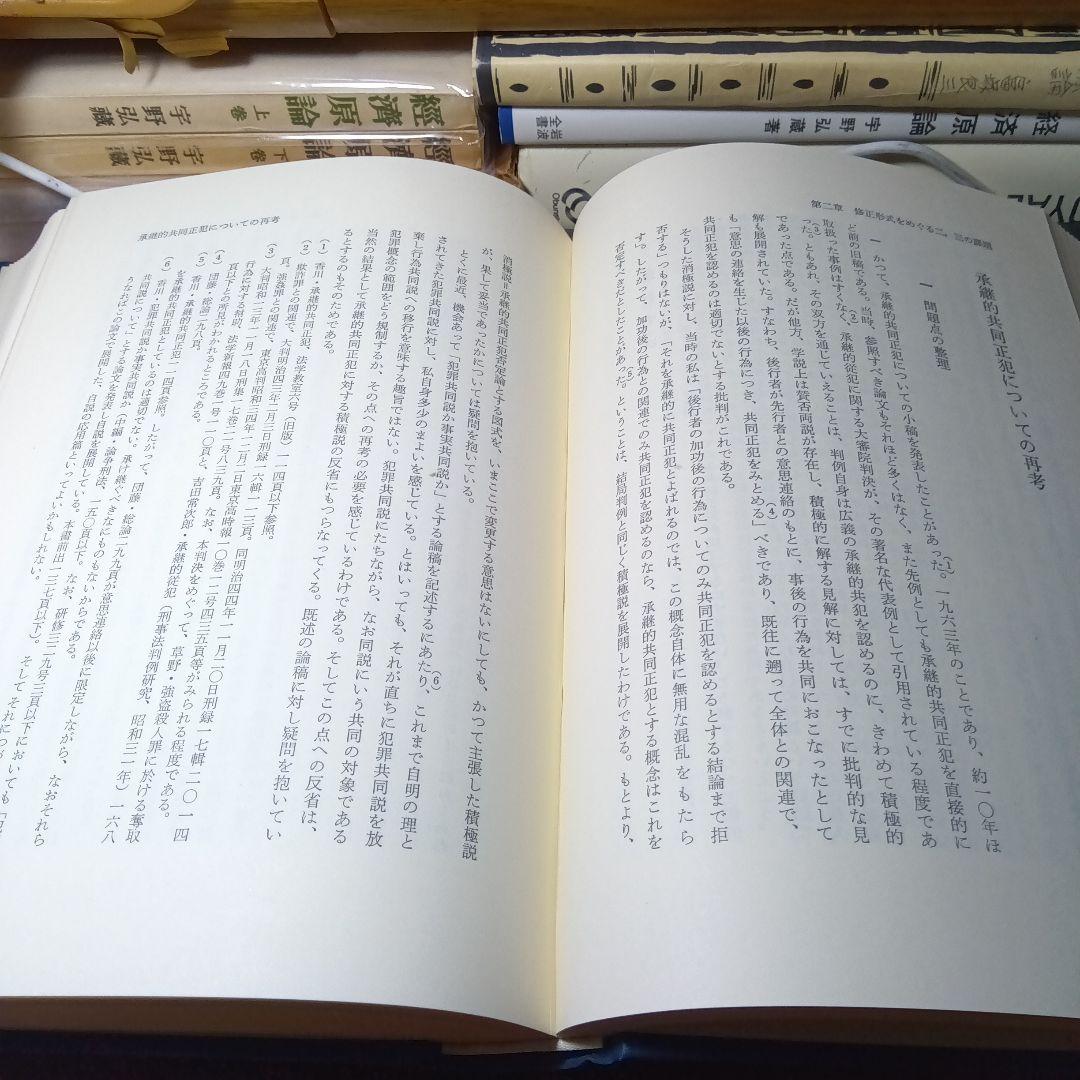 經濟原論 上巻 宇野弘藏
經濟原論 下巻 宇野弘藏
経済原論 宇野弘蔵著 岩波全書
Obun
第二章 修正形式をめぐる二、三の課題
承継的共同正犯についての再考
一 問題点の整理
一 かつて、承継的共同正犯についての小稿を発表したことがあった。(1)一九六三年のことであり、約一〇年ほ
ど前の旧稿である。当時、参照すべき論文もそれほど多くはなく、また先例としても承継的共同正犯を直接的に
取扱った事例はすくなく、(2)承継的従犯に関する大審院判決が、その著名な代表例として引用されている程度であ
った。(3)ともあれ、その双方を通じていえることは、判例自身は広義の承継的共犯を認めるのに、きわめて積極的
であった点である。だが他方、学説上は賛否両説が存在し、積極的に解する見解に対しては、すでに批判的な見
解も展開されていた。すなわち、後行者が先行者との意思連絡のもとに、事後の行為を共同におこなったとして
も「意思の連絡を生じた以後の行為につき、共同正犯をみとめる」(4)べきであり、既往に遡って全体との関連で、
共同正犯を認めるのは適切でないとする批判がこれである。
そうした消極説に対し、当時の私は「後行者の加功後の行為についてのみ共同正犯を認めるとする結論まで拒
否する」つもりはないが、「それを承継的に共同正犯とよばれるのでは、この概念自体に無用な混乱をもたら
す」。したがって、加功後の行為との関連でのみ共同正犯を認めるのなら、承継的共同正犯とする概念はこれを
否定すべきだとしたことがあった。(5)ということは、結局判例と同じく積極説を展開したわけである。もとより、
承継的共同正犯についての再考
消極説＝承継的共同正犯否定論とする図式を、いまここで変更する意思はないにしても、かつて主張した積極説
が、果して妥当であったかについては疑問を抱いている。
とくに最近、機会あって「犯罪共同説か事実共同説か」とする論稿を記述するにあたり、(6)これまで自明の理と
されてきた犯罪共同説に対し、私自身多少のまよいを感じている。とはいっても、それが直ちに犯罪共同説を放
棄し行為共同説への移行を意味する趣旨ではない。犯罪共同説にたちながら、なお同説にいう共同の対象である
犯罪概念の範囲をどう規制するか、その点への再考の必要を感じているわけである。そしてこの点への反省は、
当然の結果として承継的共同正犯に対する積極説の反省にもつらなってくる。既述の論稿に対し疑問を抱いてい
るとするのもそのためである。
(1) 香川・承継的共同正犯、法学教室六号(旧版)一一四頁以下参照。
(2) 欺詐罪との関連で、大判明治四三年二月三日刑録一六輯一一三頁。同明治四四年一一月二〇日刑録一七輯二〇一四
頁。強姦罪との関連で、東京高判昭和三四年一二月二日東京高時報一〇巻一二号四三五頁等がみられる程度である。
(3) 大判昭和一三年一一月一八日刑集一七巻二一号八三九頁。本判決をめぐって、草野・強盗殺人罪に於ける奪取
行為に対する幇助、法学新報四九巻一号一一〇頁と、吉田常次郎・承継的従犯(刑事法判例研究、昭和三一年)一六八
頁以下との意見がわかれるところである。
(4) 団藤・総論二九八頁。
(5) 香川・承継的共同正犯一一四頁参照。したがって、団藤・総論二九九頁が意思連絡以後に限定しながら、なおそれら
を承継的共同正犯としているのは適切でない。承け継ぐべきなにものもないからである。
(6) 香川・犯罪共同説か事実共同説か(中編・論争刑法、一五〇頁以下。なお、研修三二九号三頁以下においても「犯
共同説について」とする論文を発表し自説を展開している。本書前出一三七頁以下)。そしてそれにつ
うなればこの論文で展開した、自説の応用篇といってよいかもしれない。